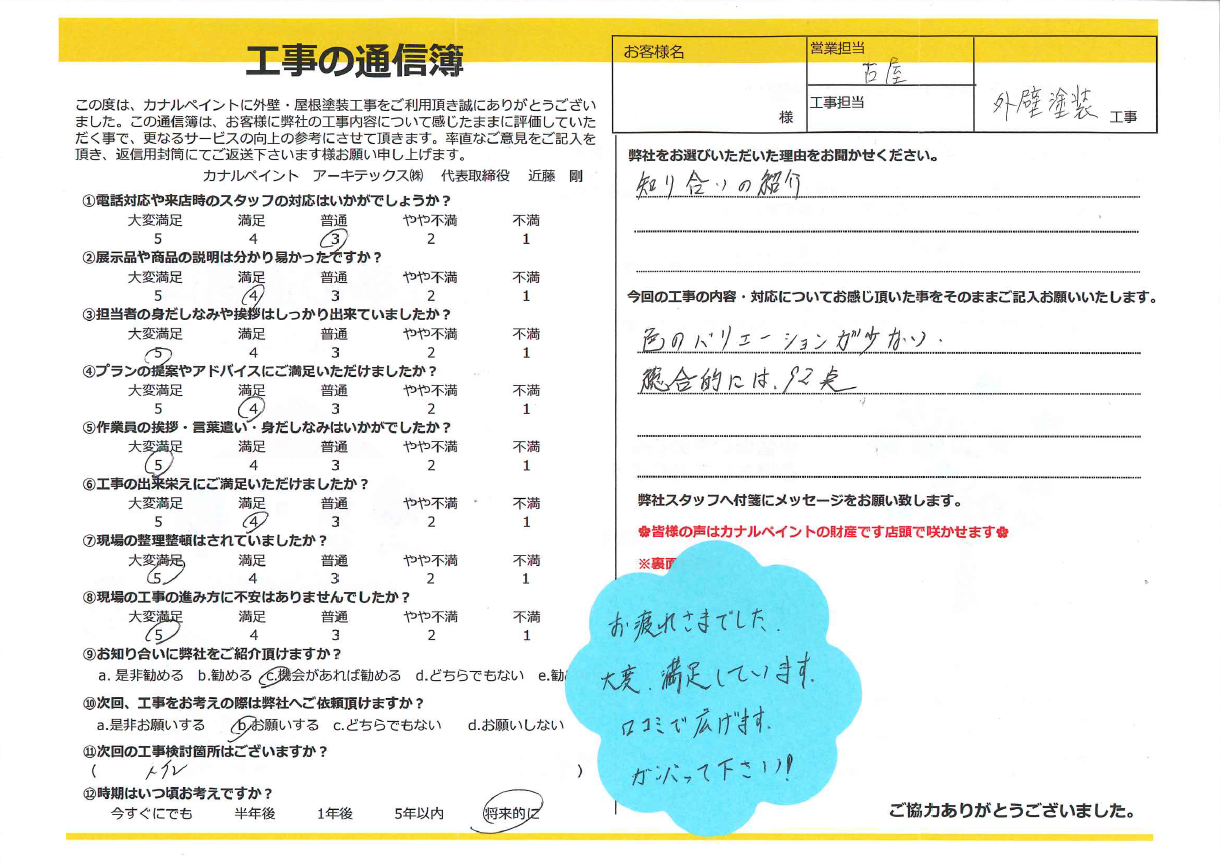 工事の通信簿
この度は、カナルペイントに外壁・屋根塗装工事をご利用頂き誠にありがとうござい
ました。この通信簿は、お客様に弊社の工事内容について感じたままに評価していた
だく事で、更なるサービスの向上の参考にさせて頂きます。率直なご意見をご記入を
頂き、返信用封筒にてご返送下さいます様お願い申し上げます。
カナルペイント アーキテックス㈱ 代表取締役 近藤 剛
①電話対応や来店時のスタッフの対応はいかがでしょうか？
大変満足 満足 普通 やや不満 不満
5 4 3 2 1
②展示品や商品の説明は分かり易かったですか？
大変満足 満足 普通 やや不満 不満
5 4 3 2 1
③担当者の身だしなみや挨拶はしっかり出来ていましたか？
大変満足 満足 普通 やや不満 不満
5 4 3 2 1
④プランの提案やアドバイスにご満足いただけましたか？
大変満足 満足 普通 やや不満 不満
5 4 3 2 1
⑤作業員の挨拶・言葉遣い・身だしなみはいかがでしたか？
大変満足 満足 普通 やや不満 不満
5 4 3 2 1
⑥工事の出来栄えにご満足いただけましたか？
大変満足 満足 普通 やや不満 不満
5 4 3 2 1
⑦現場の整理整頓はされていましたか？
大変満足 満足 普通 やや不満 不満
5 4 3 2 1
⑧現場の工事の進み方に不安はありませんでしたか？
大変満足 満足 普通 やや不満 不満
5 4 3 2 1
⑨お知り合いに弊社をご紹介頂けますか？
a. 是非勧める b.勧める c.機会があれば勧める d.どちらでもない e.勧
⑩次回、工事をお考えの際は弊社へご依頼頂けますか？
a.是非お願いする b.お願いする c.どちらでもない d.お願いしない
⑪次回の工事検討箇所はございますか？
( トイレ )
⑫時期はいつ頃お考えですか？
今すぐにでも 半年後 1年後 5年以内 将来的に
お客様名
様
営業担当
古屋
工事担当
外壁塗装 工事
弊社をお選びいただいた理由をお聞かせください。
知り合いの紹介
今回の工事の内容・対応についてお感じ頂いた事をそのままご記入お願いいたします。
色のバリエーションが少ない.
総合的には、92点
弊社スタッフへ付箋にメッセージをお願い致します。
✿皆様の声はカナルペイントの財産です店頭で咲かせます✿
※裏面
お疲れさまでした.
大変、満足しています.
口コミで広げます.
ガンバって下さい!
ご協力ありがとうございました。